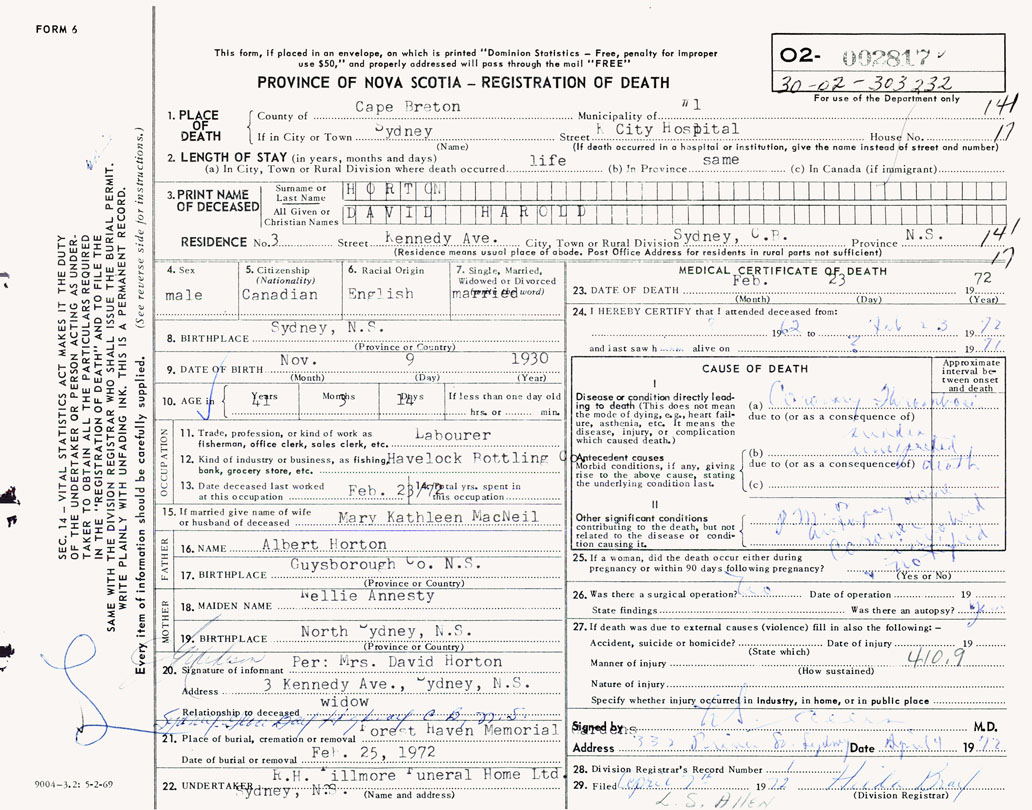 FORM 6
This form, if placed in an envelope, on which is printed "Dominion Statistics – Free, penalty for improper
use $50," and properly addressed will pass through the mail "FREE"
PROVINCE OF NOVA SCOTIA – REGISTRATION OF DEATH
02- 002817
30-02-303232
For use of the Department only
141
17
1. PLACE OF DEATH
County of Cape Breton Municipality of "1
If in City or Town Sydney Street City Hospital House No.
(Name) (If death occurred in a hospital or institution, give the name instead of street and number)
2. LENGTH OF STAY (in years, months and days)
(a) In City, Town or Rural Division where death occurred life (b) In Province same (c) In Canada (if immigrant)
3. PRINT NAME OF DECEASED
Surname or Last Name HORTON
All Given or Christian Names DAVID HAROLD
RESIDENCE No. 3 Street Kennedy Ave. City, Town or Rural Division Sydney, C.B. Province N.S.
141
17
(Residence means usual place of abode. Post Office Address for residents in rural parts not sufficient)
4. Sex
male
5. Citizenship
(Nationality)
Canadian
6. Racial Origin
English
7. Single, Married,
Widowed or Divorced
(write the word)
married
8. BIRTHPLACE Sydney, N.S.
(Province or Country)
9. DATE OF BIRTH Nov. 9 1930
(Month) (Day) (Year)
10. AGE in Years 41 Months 3 Days 14 If less than one day old
hrs. or min.
OCCUPATION
11. Trade, profession, or kind of work as
fisherman, office clerk, sales clerk, etc. Labourer
12. Kind of industry or business, as fishing, Havelock Bottling Co
bank, grocery store, etc.
13. Date deceased last worked
at this occupation Feb. 23/72
14. Total yrs. spent in
this occupation
15. If married give name of wife
or husband of deceased Mary Kathleen MacNeil
FATHER
16. NAME Albert Horton
17. BIRTHPLACE Guysborough Co. N.S.
(Province or Country)
MOTHER
18. MAIDEN NAME Nellie Annesty
19. BIRTHPLACE North Sydney, N.S.
(Province or Country)
20. Signature of informant Per: Mrs. David Horton
Address 3 Kennedy Ave., Sydney, N.S.
Relationship to deceased widow
Sydney Glace Bay Highway C.B., N.S.
21. Place of burial, cremation or removal Forest Haven Memorial
Gardens
Date of burial or removal Feb. 25, 1972
22. UNDERTAKER R.H. Fillmore Funeral Home Ltd.
Sydney, N.S. (Name and address)
MEDICAL CERTIFICATE OF DEATH
23. DATE OF DEATH Feb. 23 1972
(Month) (Day) (Year)
24. I HEREBY CERTIFY that I attended deceased from:
1962 to Feb 23 1972
and i last saw h alive on ? 1971
CAUSE OF DEATH
Approximate interval between onset and death
I
Disease or condition directly leading to death (This does not
the mode of dying, e.g., heart failure, asthenia, etc. It means the
disease, injury, or complication
which caused death.)
(a) Coronary Thrombosis
due to (or as a consequence of)
sudden
unexpected
death
Antecedent causes
Morbid conditions, if any, giving
rise to the above cause, stating
the underlying condition last.
(b)
due to (or as a consequence of)
(c)
II
Other significant conditions
contributing to the death, but not
related to the disease or condition causing it.
notified
25. If a woman, did the death occur either during
pregnancy or within 90 days following pregnancy?
(Yes or No)
26. Was there a surgical operation? no Date of operation 19
State findings Was there an autopsy? yes
27. If death was due to external causes (violence) fill in also the following: –
Accident, suicide or homicide? Date of injury 19
(State which)
Manner of injury 410.9
(How sustained)
Nature of injury
Specify whether injury occurred in industry, in home, or in public place
Signed by M.D.
Address 332 Prince St. Sydney Date April 4 1972
28. Division Registrar's Record Number
29. Filed April 7th 1972 Hilda Bray
(Division Registrar)
L.S. ALLEN
SEC. 14 – VITAL STATISTICS ACT MAKES IT THE DUTY
OF THE UNDERTAKER OR PERSON ACTING AS UNDERTAKER TO OBTAIN ALL THE PARTICULARS REQUIRED
IN THE "REGISTRATION OF DEATH" AND TO FILE THE
SAME WITH THE DIVISION REGISTRAR WHO SHALL ISSUE THE BURIAL PERMIT.
WRITE PLAINLY WITH UNFADING INK. THIS IS A PERMANENT RECORD.
Every item of information should be carefully supplied. (See reverse side for instructions.)
9004-3.2: 5-2-69